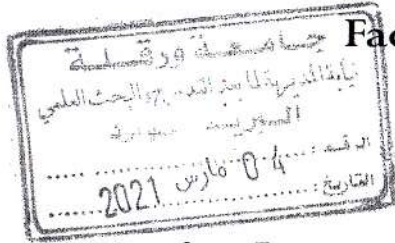 Fac
جامعة ورقلة
نيابة المديرية لما بعد التدرج والبحث العلمي
الرقم : ..........
التاريخ : 04 مارس 2021